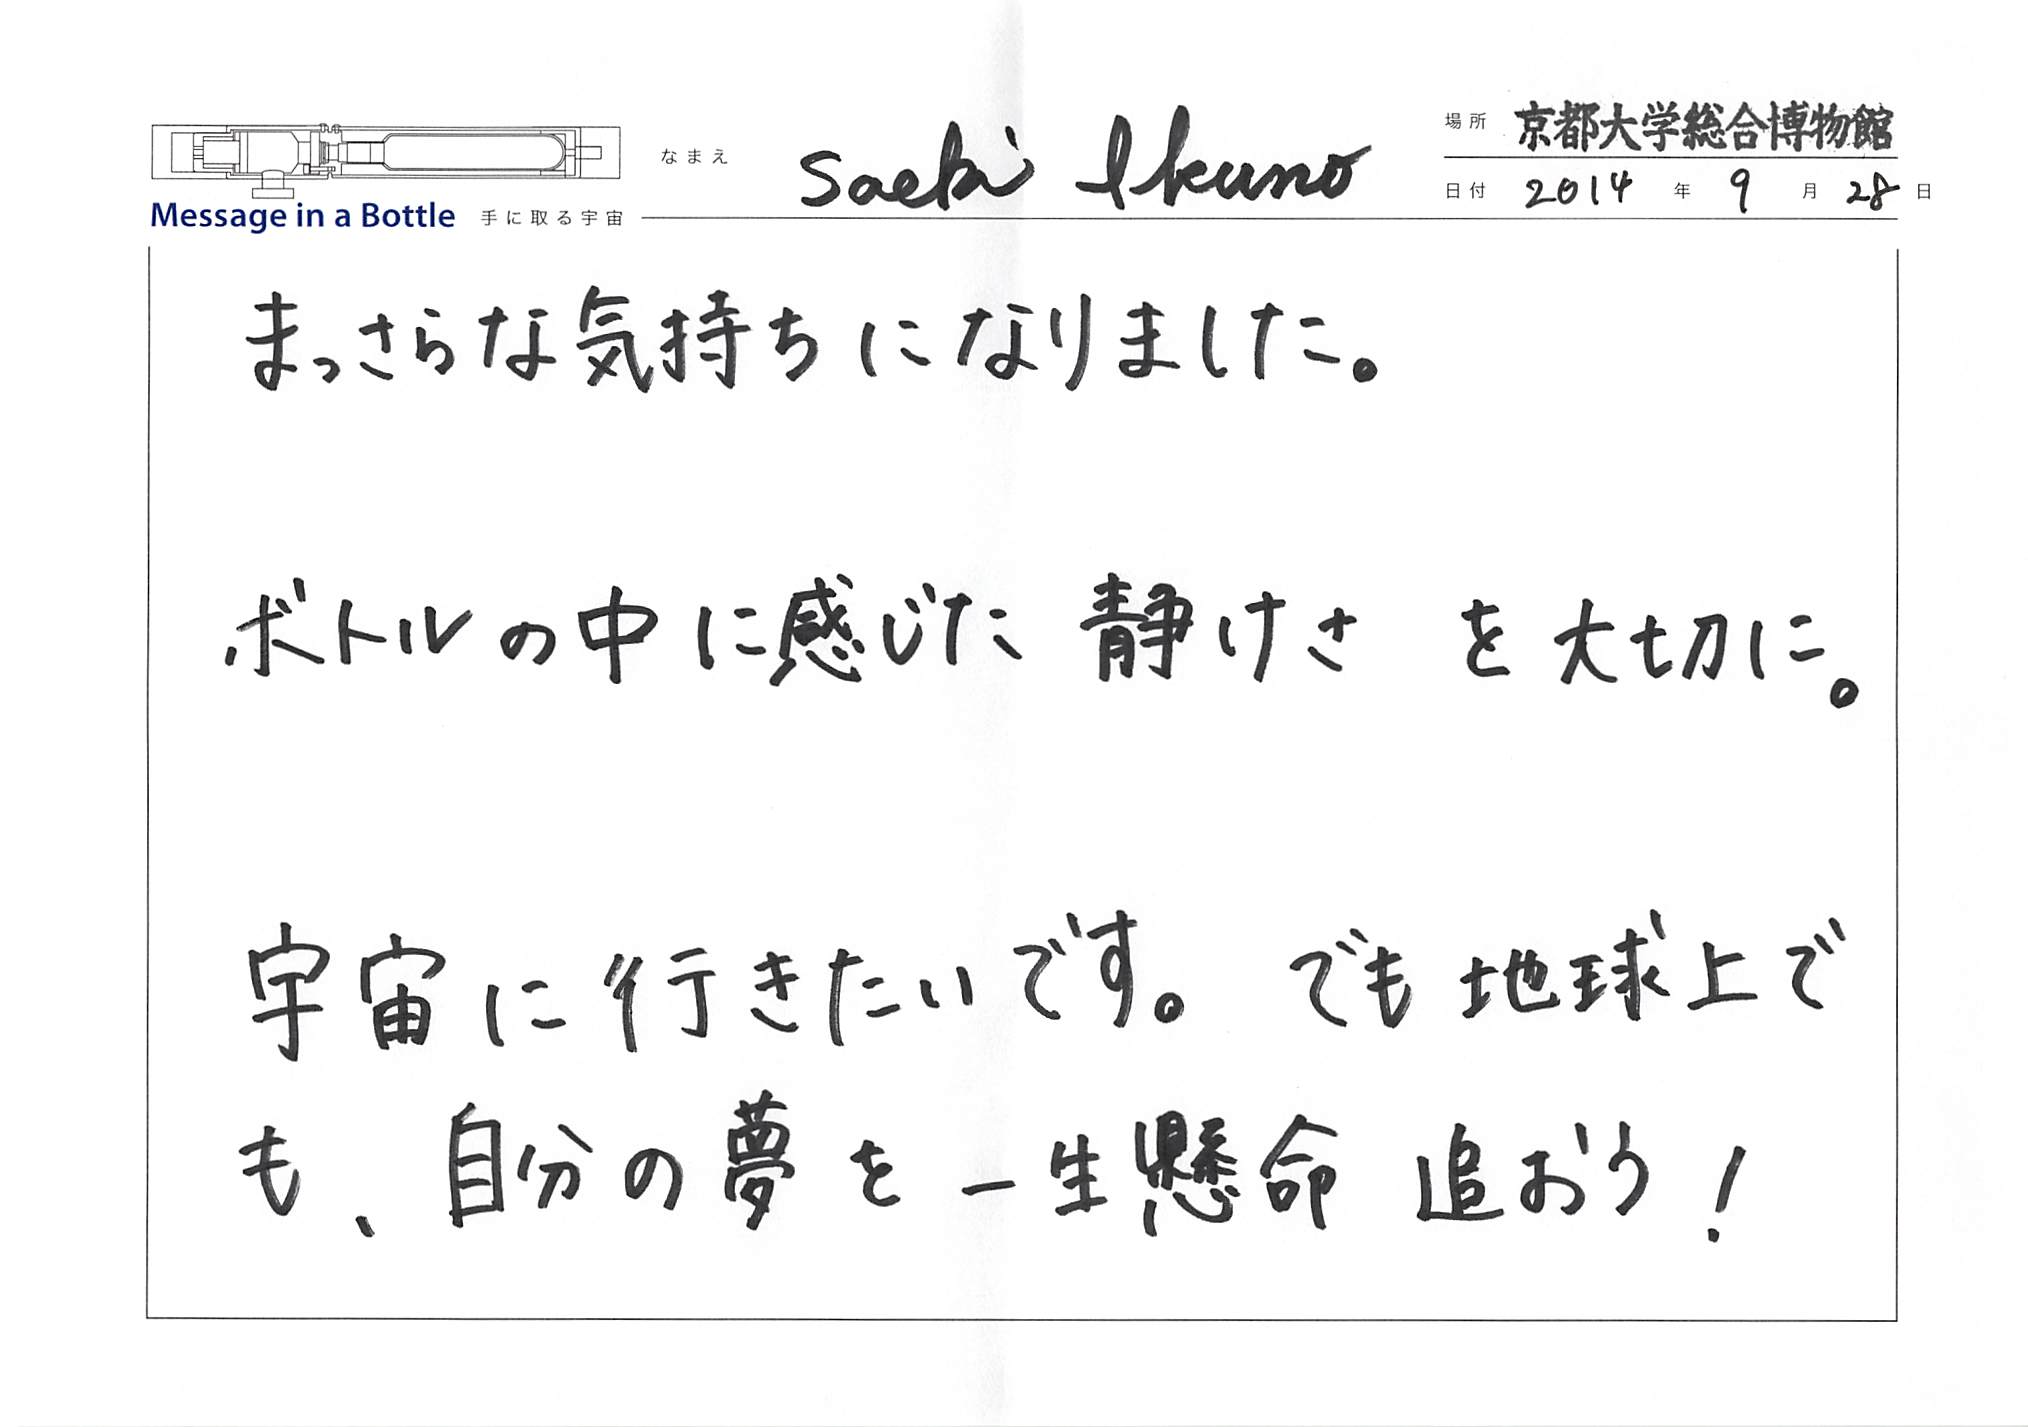 なまえ Saeki Ikuno
場所 京都大学総合博物館
日付 2014 年 9 月 28 日
Message in a Bottle 手に取る宇宙
まっさらな気持ちになりました。
ボトルの中に感じた 静けさ を大切に。
宇宙に行きたいです。 でも地球上で
も、自分の夢を一生懸命 追おう!